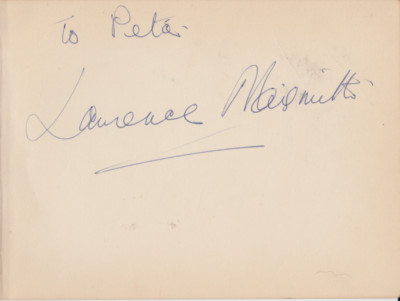 To Peter
Laurence Naismith